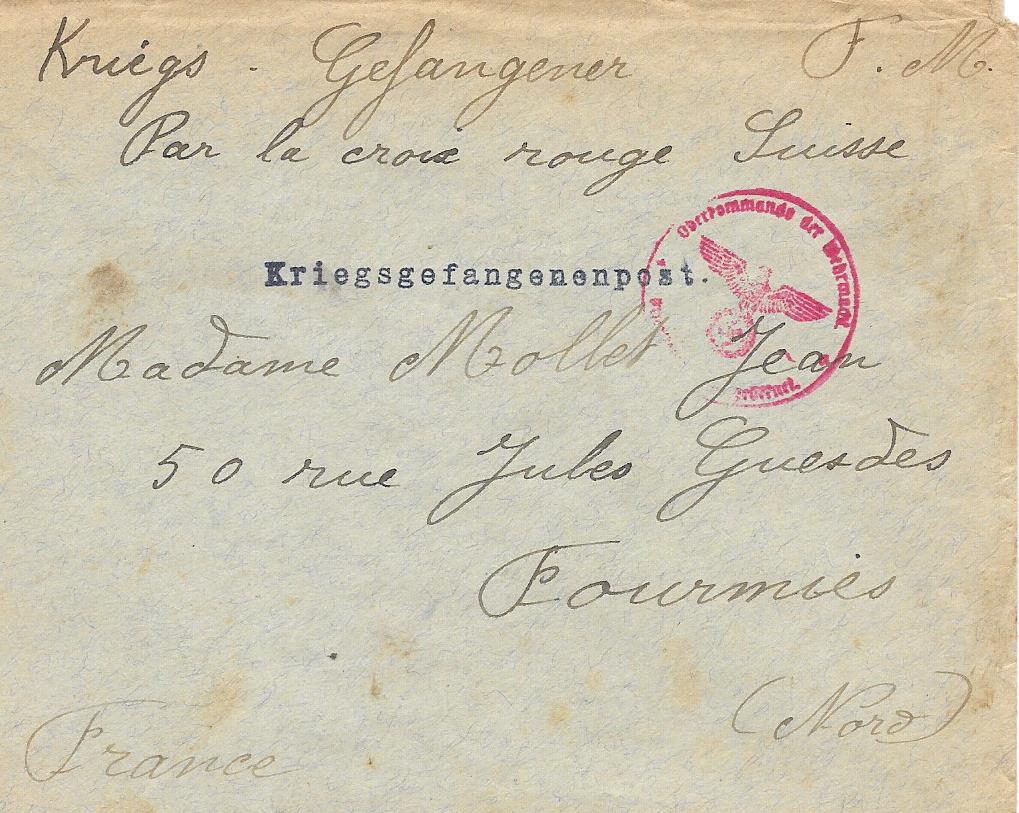 Kriegs - Gefangener F. M.
Par la croix rouge Suisse
Oberkommando der Wehrmacht
Kriegsgefangenenpost.
Madame Mollet Jean
geöffnet.
50 rue Jules Guesdes
Fourmies
(Nord)
France